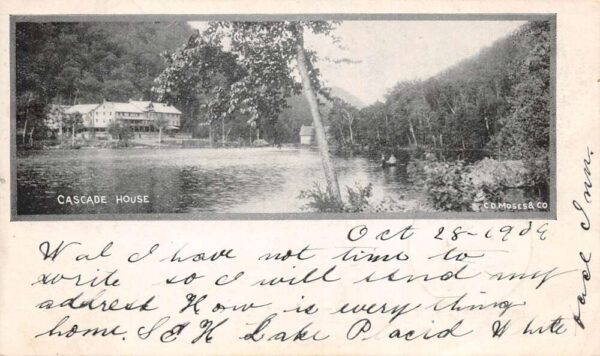 CASCADE HOUSE
C.D. MOSES & CO
Oct 28-190
Wal I have not time to
write so I will send my
address How is every thing
home. S.E.H Lake Placid White
Inn.